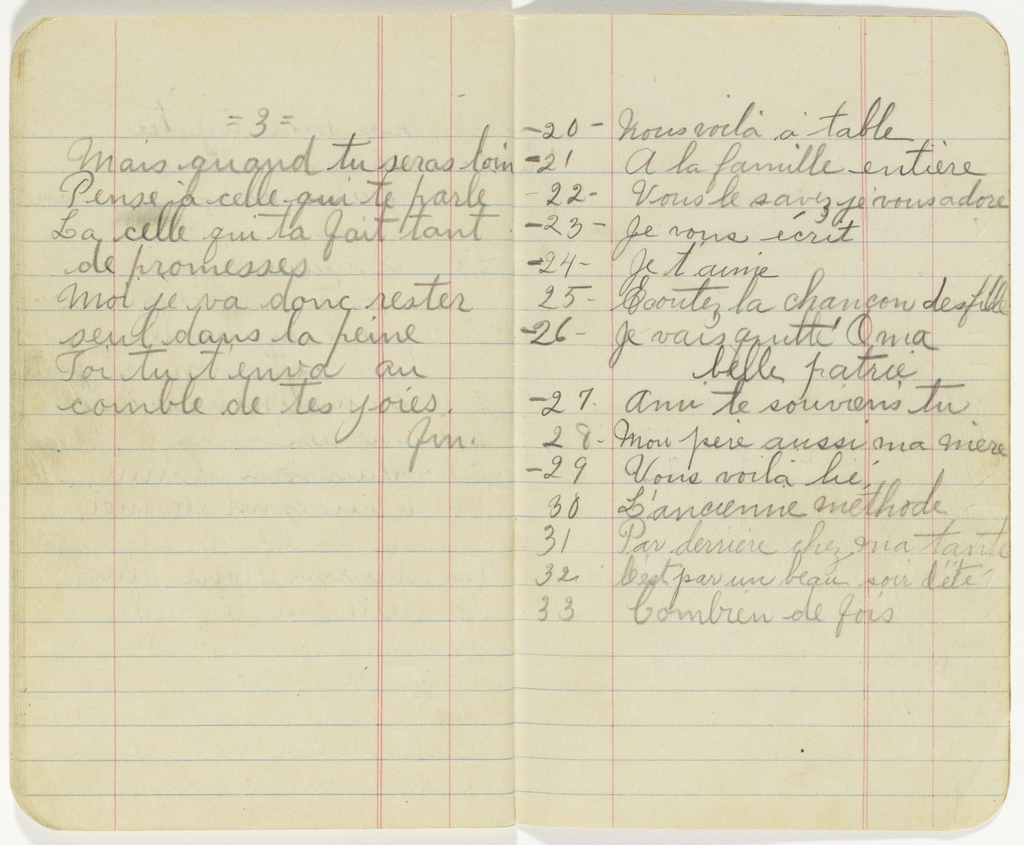 = 3 =
Mais quand tu seras loin
Pense à celle qui te parle
La celle qui ta fait tant
de promesses
Moi je va donc rester
seul dans la peine
Toi tu t'enva au
comble de tes joies.
Fin.
-20- Nous voilà à table
-21 A la famille entière
-22- Vous le savez je vous adore
-23- Je vous écrit
-24- Je t'aime
25- Écoutez la chançon des fille
-26- Je vais quitté O ma
belle patrie
-27. Ami te souviens tu
28- Mon père aussi ma mère
-29 Vous voilà lié
30 L'ancienne méthode
31 Par derrière chez ma tante
32 C'est par un beau soir d'été
33 Combien de fois